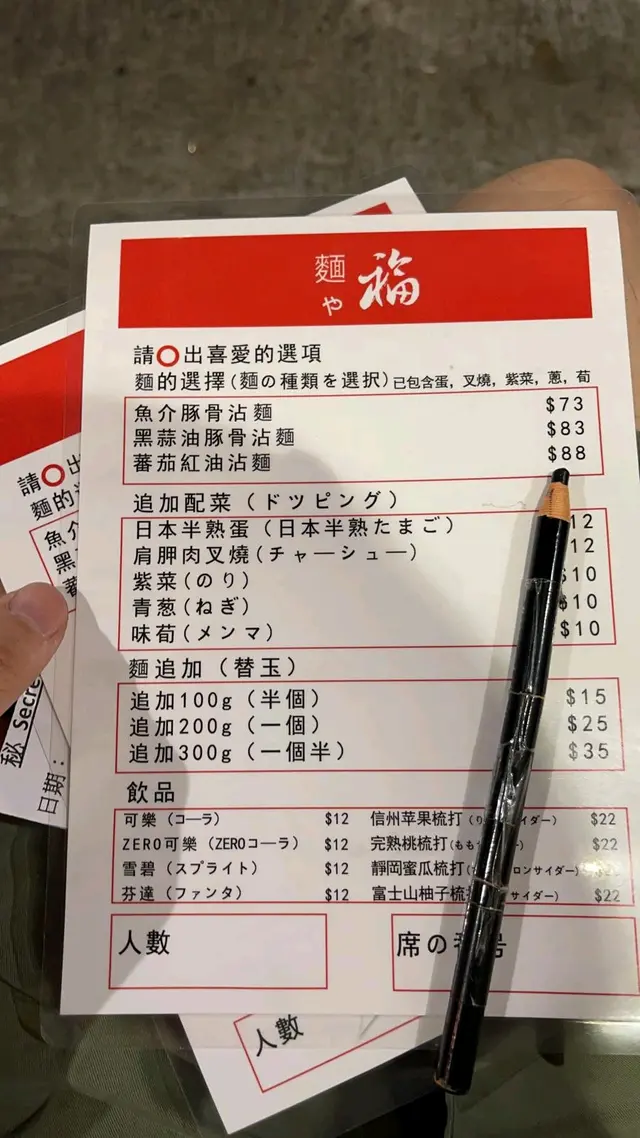 麵や 福
請出喜愛的選項
麵的選擇(麵の種類を選択)已包含蛋, 叉燒, 紫菜, 蔥, 荀
魚介豚骨沾麵 $73
黑蒜油豚骨沾麵 $83
蕃茄紅油沾麵 $88
追加配菜(ドツピング)
日本半熟蛋(日本半熟たまご) 12
肩胛肉叉燒(チャーシュー) 12
紫菜(のり) $10
青葱(ねぎ) $10
味荀(メンマ) $10
麵追加(替玉)
追加100g(半個) $15
追加200g(一個) $25
追加300g(一個半) $35
飲品
可樂(コーラ) $12 信州苹果梳打 $22
ZERO可樂(ZEROコーラ) $12 完熟桃梳打 $22
雪碧(スプライト) $12 靜岡蜜瓜梳打
芬達(ファンタ) $12 富士山柚子梳 $22
人數 席の
請出
麵的
魚介
黑
蕃
秘 Secre
日期:
人數